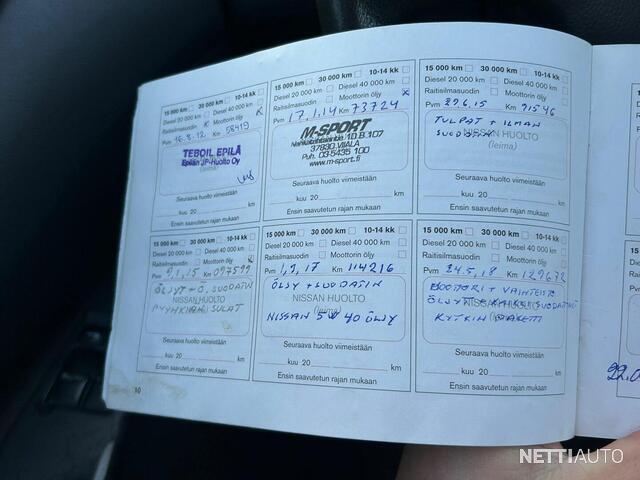 15 000 km 30 000 km 10-14 kk
Diesel 20 000 km Diesel 40 000 km
Raitisilmasuodin x Moottorin öljy x
Pvm 16.8.12 Km 58419
TEBOIL EPILÄ
Epilän JP-Huolto Oy
(leima)
Seuraava huolto viimeistään
kuu 20 km
Ensin saavutetun rajan mukaan
15 000 km 30 000 km 10-14 kk
Diesel 20 000 km Diesel 40 000 km
Raitisilmasuodin Moottorin öljy x
Pvm 17.1.14 Km 73724
M-SPORT
37830 VIIALA
Puh. 03-5435 100
www.m-sport.fi
Seuraava huolto viimeistään
kuu 20 km
Ensin saavutetun rajan mukaan
15 000 km 30 000 km 10-14 kk
Diesel 20 000 km Diesel 40 000 km
Raitisilmasuodin Moottorin öljy
Pvm 29.6.15 Km 91546
TULPAT + ILMAN
SUODATIN
NISSAN HUOLTO
(leima)
Seuraava huolto viimeistään
kuu 20 km
Ensin saavutetun rajan mukaan
15 000 km 30 000 km 10-14 kk
Diesel 20 000 km Diesel 40 000 km
Raitisilmasuodin Moottorin öljy x
Pvm 9.1.15 Km 097599
ÖLJYT + Ö. SUODATIN
NISSAN HUOLTO
PYYHKIJÄN SULAT
Seuraava huolto viimeistään
kuu 20 km
Ensin saavutetun rajan mukaan
15 000 km 30 000 km 10-14 kk
Diesel 20 000 km Diesel 40 000 km
Raitisilmasuodin Moottorin öljy
Pvm 1.9.17 Km 114216
ÖLJY + SUODATIN
NISSAN HUOLTO
(leima)
NISSAN 5W 40 ÖLJY
Seuraava huolto viimeistään
kuu 20 km
Ensin saavutetun rajan mukaan
15 000 km 30 000 km 10-14 kk
Diesel 20 000 km Diesel 40 000 km
Raitisilmasuodin Moottorin öljy
Pvm 24.5.18 Km 129672
MOOTTORI + VAIHTEISTO
NISSAN HUOLTO
(leima)
KYTKIN PAKETTI
Seuraava huolto viimeistään
kuu 20 km
Ensin saavutetun rajan mukaan
10
22.0
NETTIAUTO